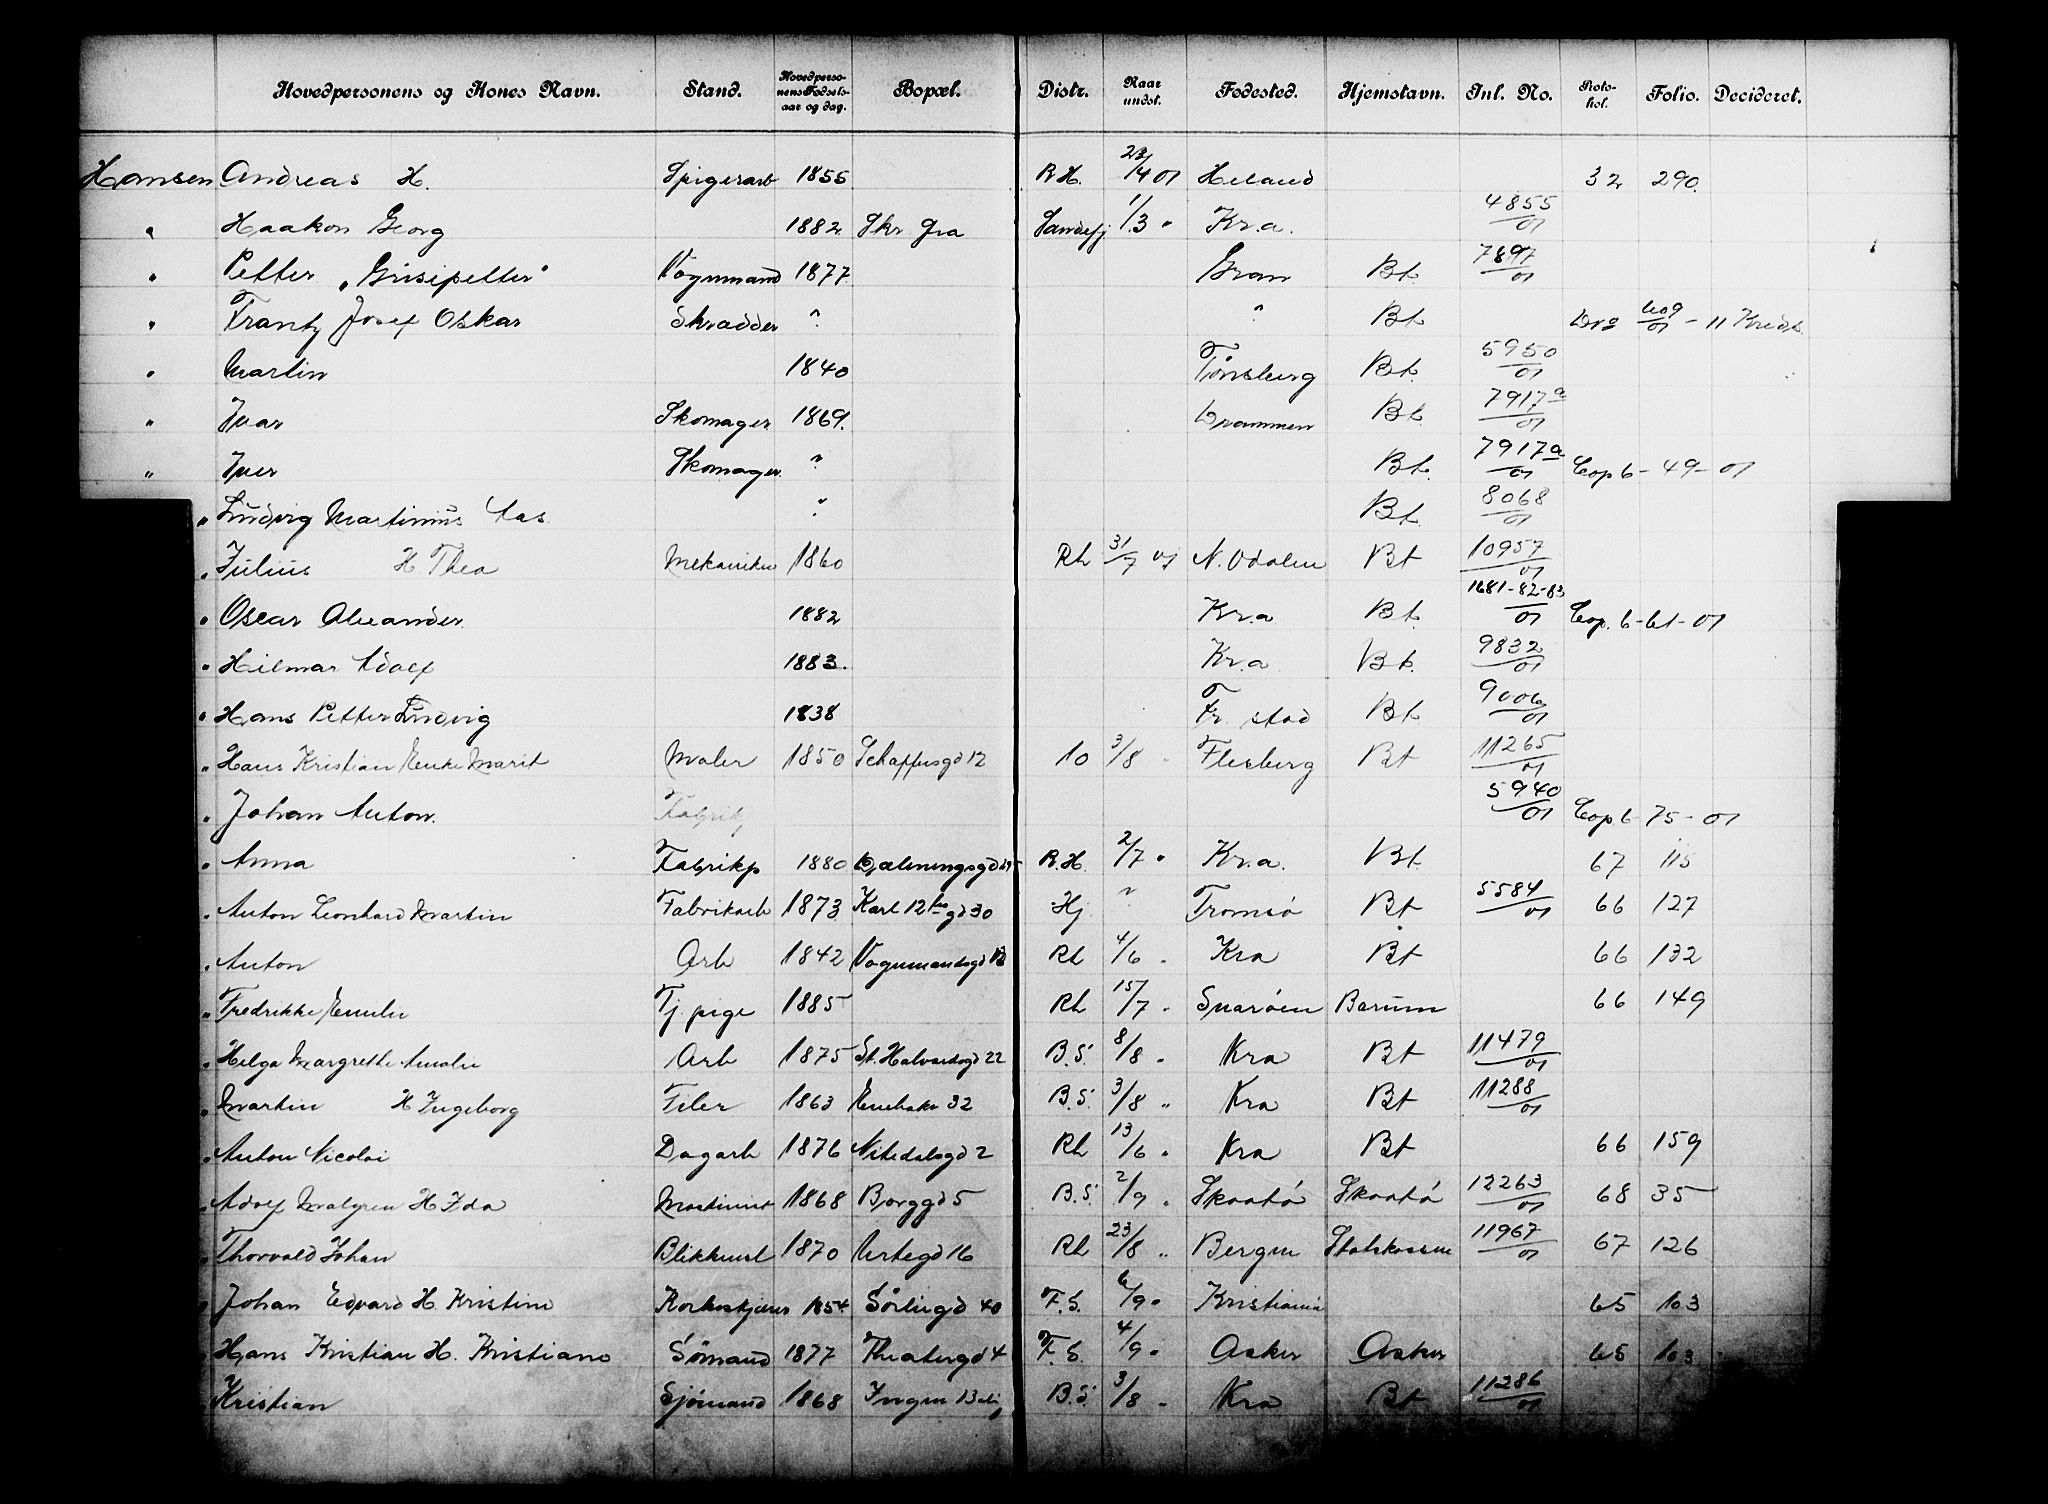 Hovedpersonens og Kones Navn. Stand. Hovedpersonens Fødselsaar og dag. Bopæl. Distr. Naar undst. Fødested. Hjemstavn. Inl. No. Protokol. Folio. Decideret.
Hansen Andreas H. Spigerarb 1855 R.H. /4 01 32 290.
" Haakon Georg 1882 Sandefj 1/3 " Kr.a. 4855/01
" Petter "Grisepetter" Vognmand 1877. Gran Bt. 7897/01
" Frantz Josef Oskar Skrædder " " Bt 609/01 - 11 Kreds.
" Martin 1840 Tønsberg Bt. 5950/01
" Ivar Skomager 1869. Drammen Bt 7917a/01
" Iver Skomager. " Bt. 7917a/01 Cop 6 - 49 - 01
" Ludvig Martinius Aas " Bt. 8068/01
" Julius H Thea Mekaniker 1860 Rh 31/7 01 N. Odalen Bt 10957/01
" Oscar Alexander 1882 Kr.a Bt. 1681-82-83/01 Cop. 6-61-01
" Hilmar Adolf 1883. Kr.a Bt. 9832/01
" Hans Petter Ludvig 1838 Fr. stad Bt 9006/01
" Hans Kristian Enke Marit Maler 1850 Schaffersgd 12 10 3/8 " Flesberg Bt 11265/01
" Johan Anton. Fabrikp 5940/01 Cop 6 - 75 - 01
" Anna Fabrikp 1880 R.H. 2/7 " Kr.a. Bt. 67 115
" Anton Leonhard Martin Fabrikarb 1873 Karl 12tes gd 30 Hj " Tromsø Bt 5584/01 66 127
" Anton Arb 1842 Vognmandsgd Rh 4/6 " Kra Bt 66 132
" Fredrikke Emilie Tj. pige 1885 Rh 15/7 " Snarøen Bærum 66 149
" Helga Margrethe Amalie Arb 1875 St. Halvardsgd 22 B.S. 8/8 " Kra Bt 11479/01
" Martin H Ingeborg Filer 1863 Enebakv 32 B.S. 3/8 " Kra Bt 11288/01
" Anton Nicolai Dagarb 1876 Nitedalsgd 2 Rh 13/6 " Kra Bt 66 159
" Adolf Malgren H Ida Maskinist 1868 Borggd 5 B.S. 2/9 " Skaatø Skaatø 12263/01 68 35
" Thorvald Johan Blikkensl 1870 Urtegd 16 Rh 23/8 " Bergen Statskassen 11967/01 67 126
" Johan Edvard H. Kristine 1854. Sörligd 40 F.S. 6/9 " Kristiania 65 103
" Hans Kristian H. Kristiane Sömand 1877 Theatergd 4 F.S. 4/9 " Asker Asker 65 103
Kristian Sjömand 1868 B.S. 3/8 " Kra Bt 11286/01